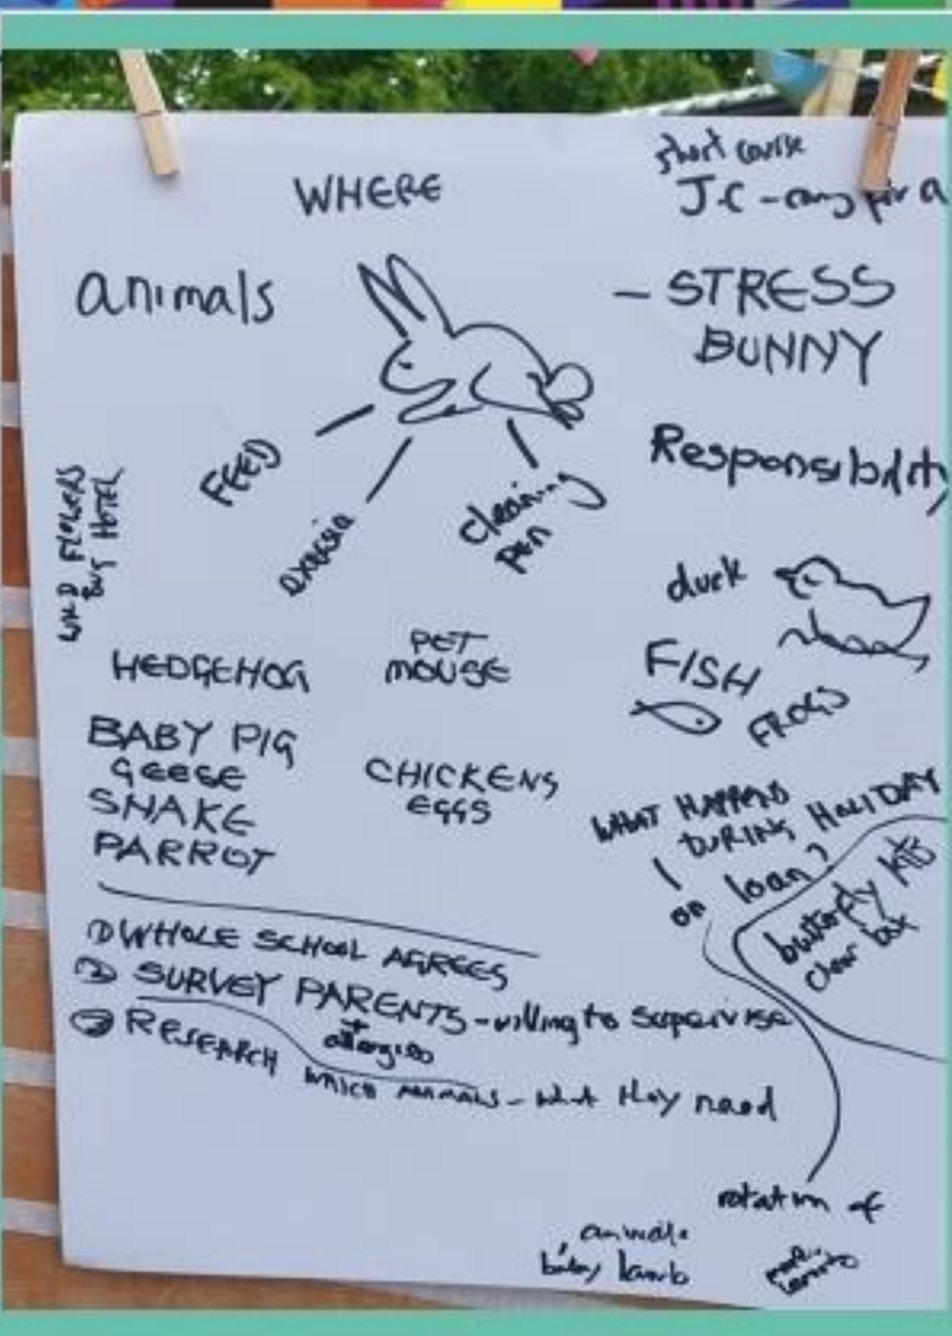 WHERE
short course
J.C -
animals
- STRESS
BUNNY
Responsibility
FEED
cleaning
pen
WILD FLOWERS
BUG HOTEL
duck
HEDGEHOG
PET
MOUSE
FISH
FROGS
BABY PIG
GEESE
SNAKE
PARROT
CHICKENS
EGGS
WHAT HAPPENS
DURING HOLIDAY
on loan?
butterfly kits
clear box
① WHOLE SCHOOL AGREES
② SURVEY PARENTS - willing to supervise
+
allergies
③ RESEARCH WHICH ANIMALS - what they need
rotation of
animals
baby lamb